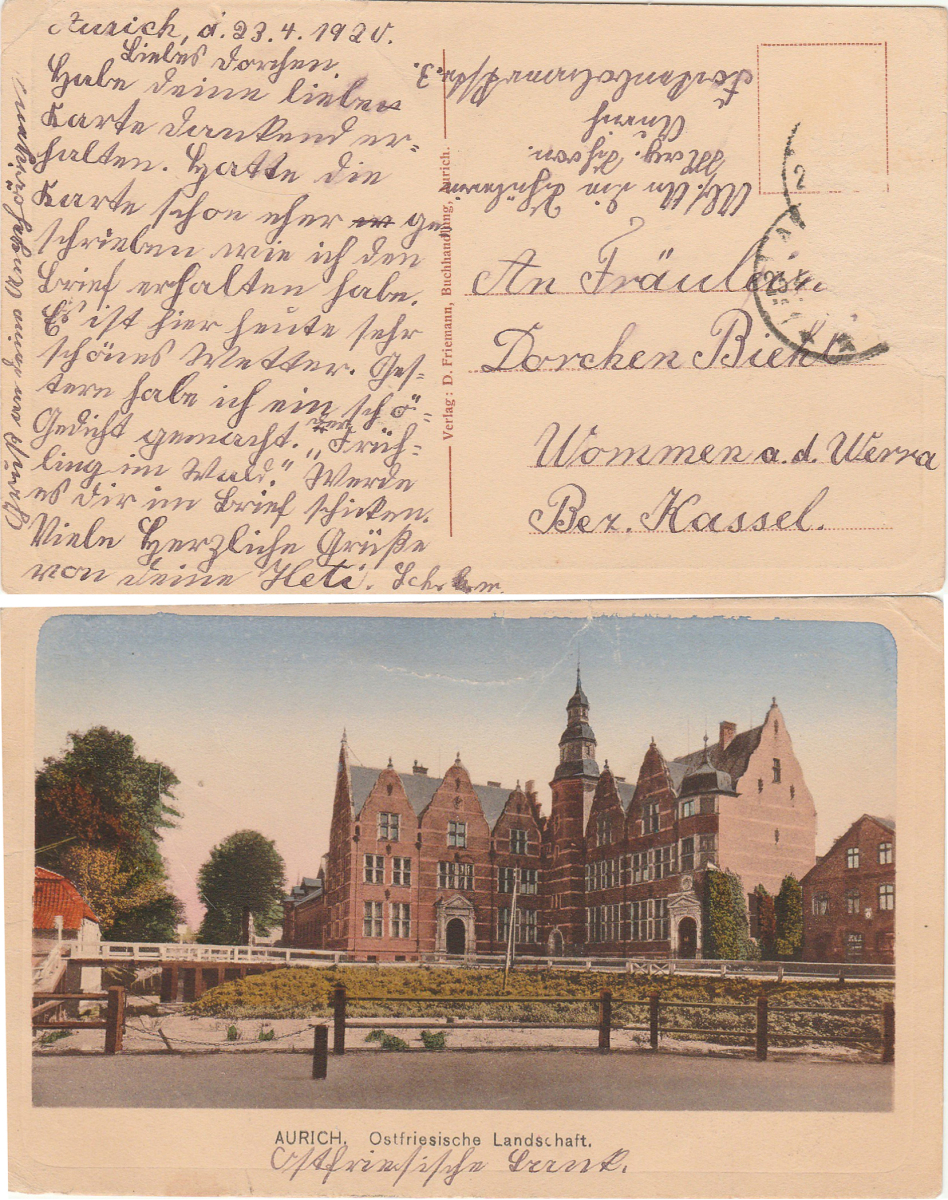 Aurich, d. 23.4.1920.
Liebes Dorchen.
Habe deine lieben
Karte dankend er-
halten. Hatte die
Karte schon eher ge
schrieben wie ich den
Brief erhalten habe.
Es ist hier heute sehr
schönes Wetter. Ges-
tern habe ich ein schö"
Gedicht gemacht. „der Früh-
ling im Wald." Werde
es dir im Brief schicken.
Viele Herzliche Grüße
von deine Heti.
Verlag: D. Friemann, Buchhandlung, Aurich.
Abs. An die Schülerin
Marg.
Aurich
3.
An Fräulein
Dorchen Biehl
Wommen a. d. Werra
Bez. Kassel.
AURICH. Ostfriesische Landschaft.
Ostfriesische Bank.